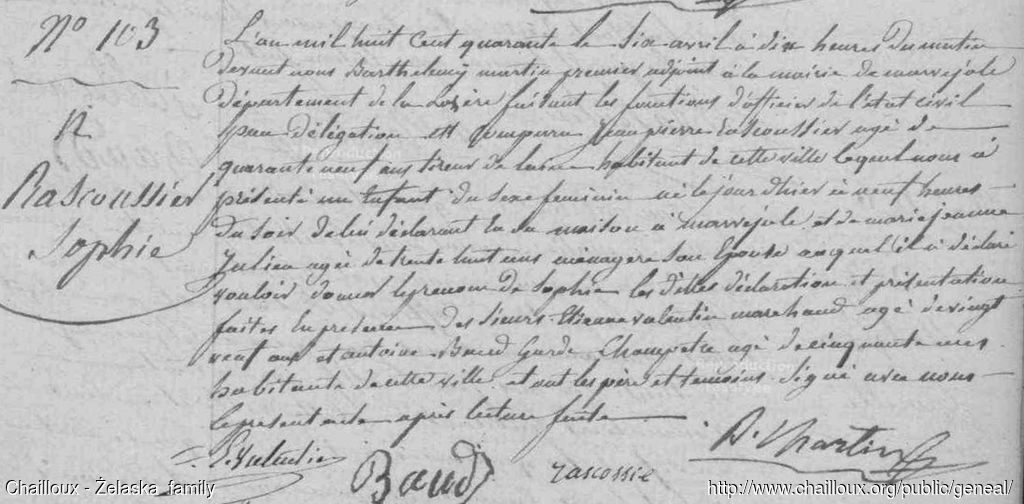 N° 103
N
Rascoussier
Sophie
L'an mil huit cent quarante le six avril à dix heures du matin
devant nous Barthelemy martin premier adjoint à la mairie de marvejols
département de la Lozère faisant les fonctions d'officier de l'état civil
par délégation est comparu Jean pierre Rascoussier agé de
quarante neuf ans tireur de laine habitant de cette ville lequel nous à
présenté un Enfant du sexe feminin né le jour d'hier à neuf heures
du soir de lui déclarant en sa maison à marvejols et de marie jeanne
Julien agée de trente huit ans ménagere son Epouse auquel il a déclaré
vouloir donner le prenom de Sophie les dittes déclaration et présentation
faites En présence des Sieurs Etienne valentin marchand agé de vingt
neuf ans et antoine Baud Garde Champetre agé de cinquante ans
habitants de cette ville et ont les père et temoins signé avec nous
le present acte après lecture faite
E. Valentin
Baud
rascossie
B. Martin
Chailloux - Żelaska family
http://www.chailloux.org/public/geneal/